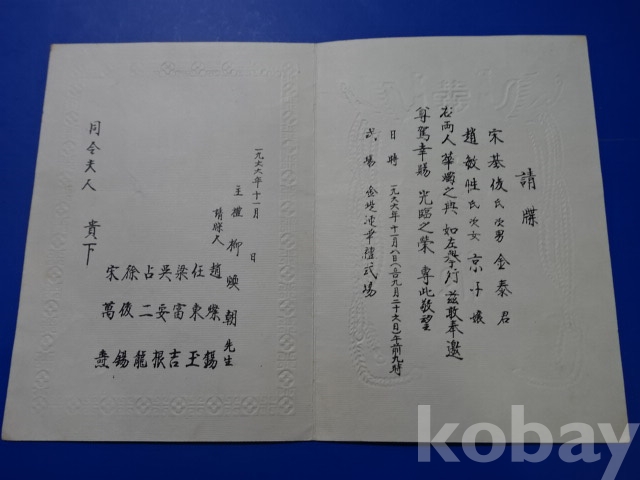 請牒
宋基俊氏 次男 金泰 君
趙敏性氏 次女 京子 孃
右兩人 華燭之典 如左擧行 玆敢奉邀
尊駕幸賜 光臨之榮 專此敬望
日時 一九六六年十一月八日(舊九月二十六日)午前九時
式場 金 式場
一九六六年十一月 日
主禮 柳煥朝 先生
請牒人 趙燦錫
任東王
梁富吉
吳妥根
占二龍
徐俊錫
宋萬燮
同令夫人 貴下
kobay